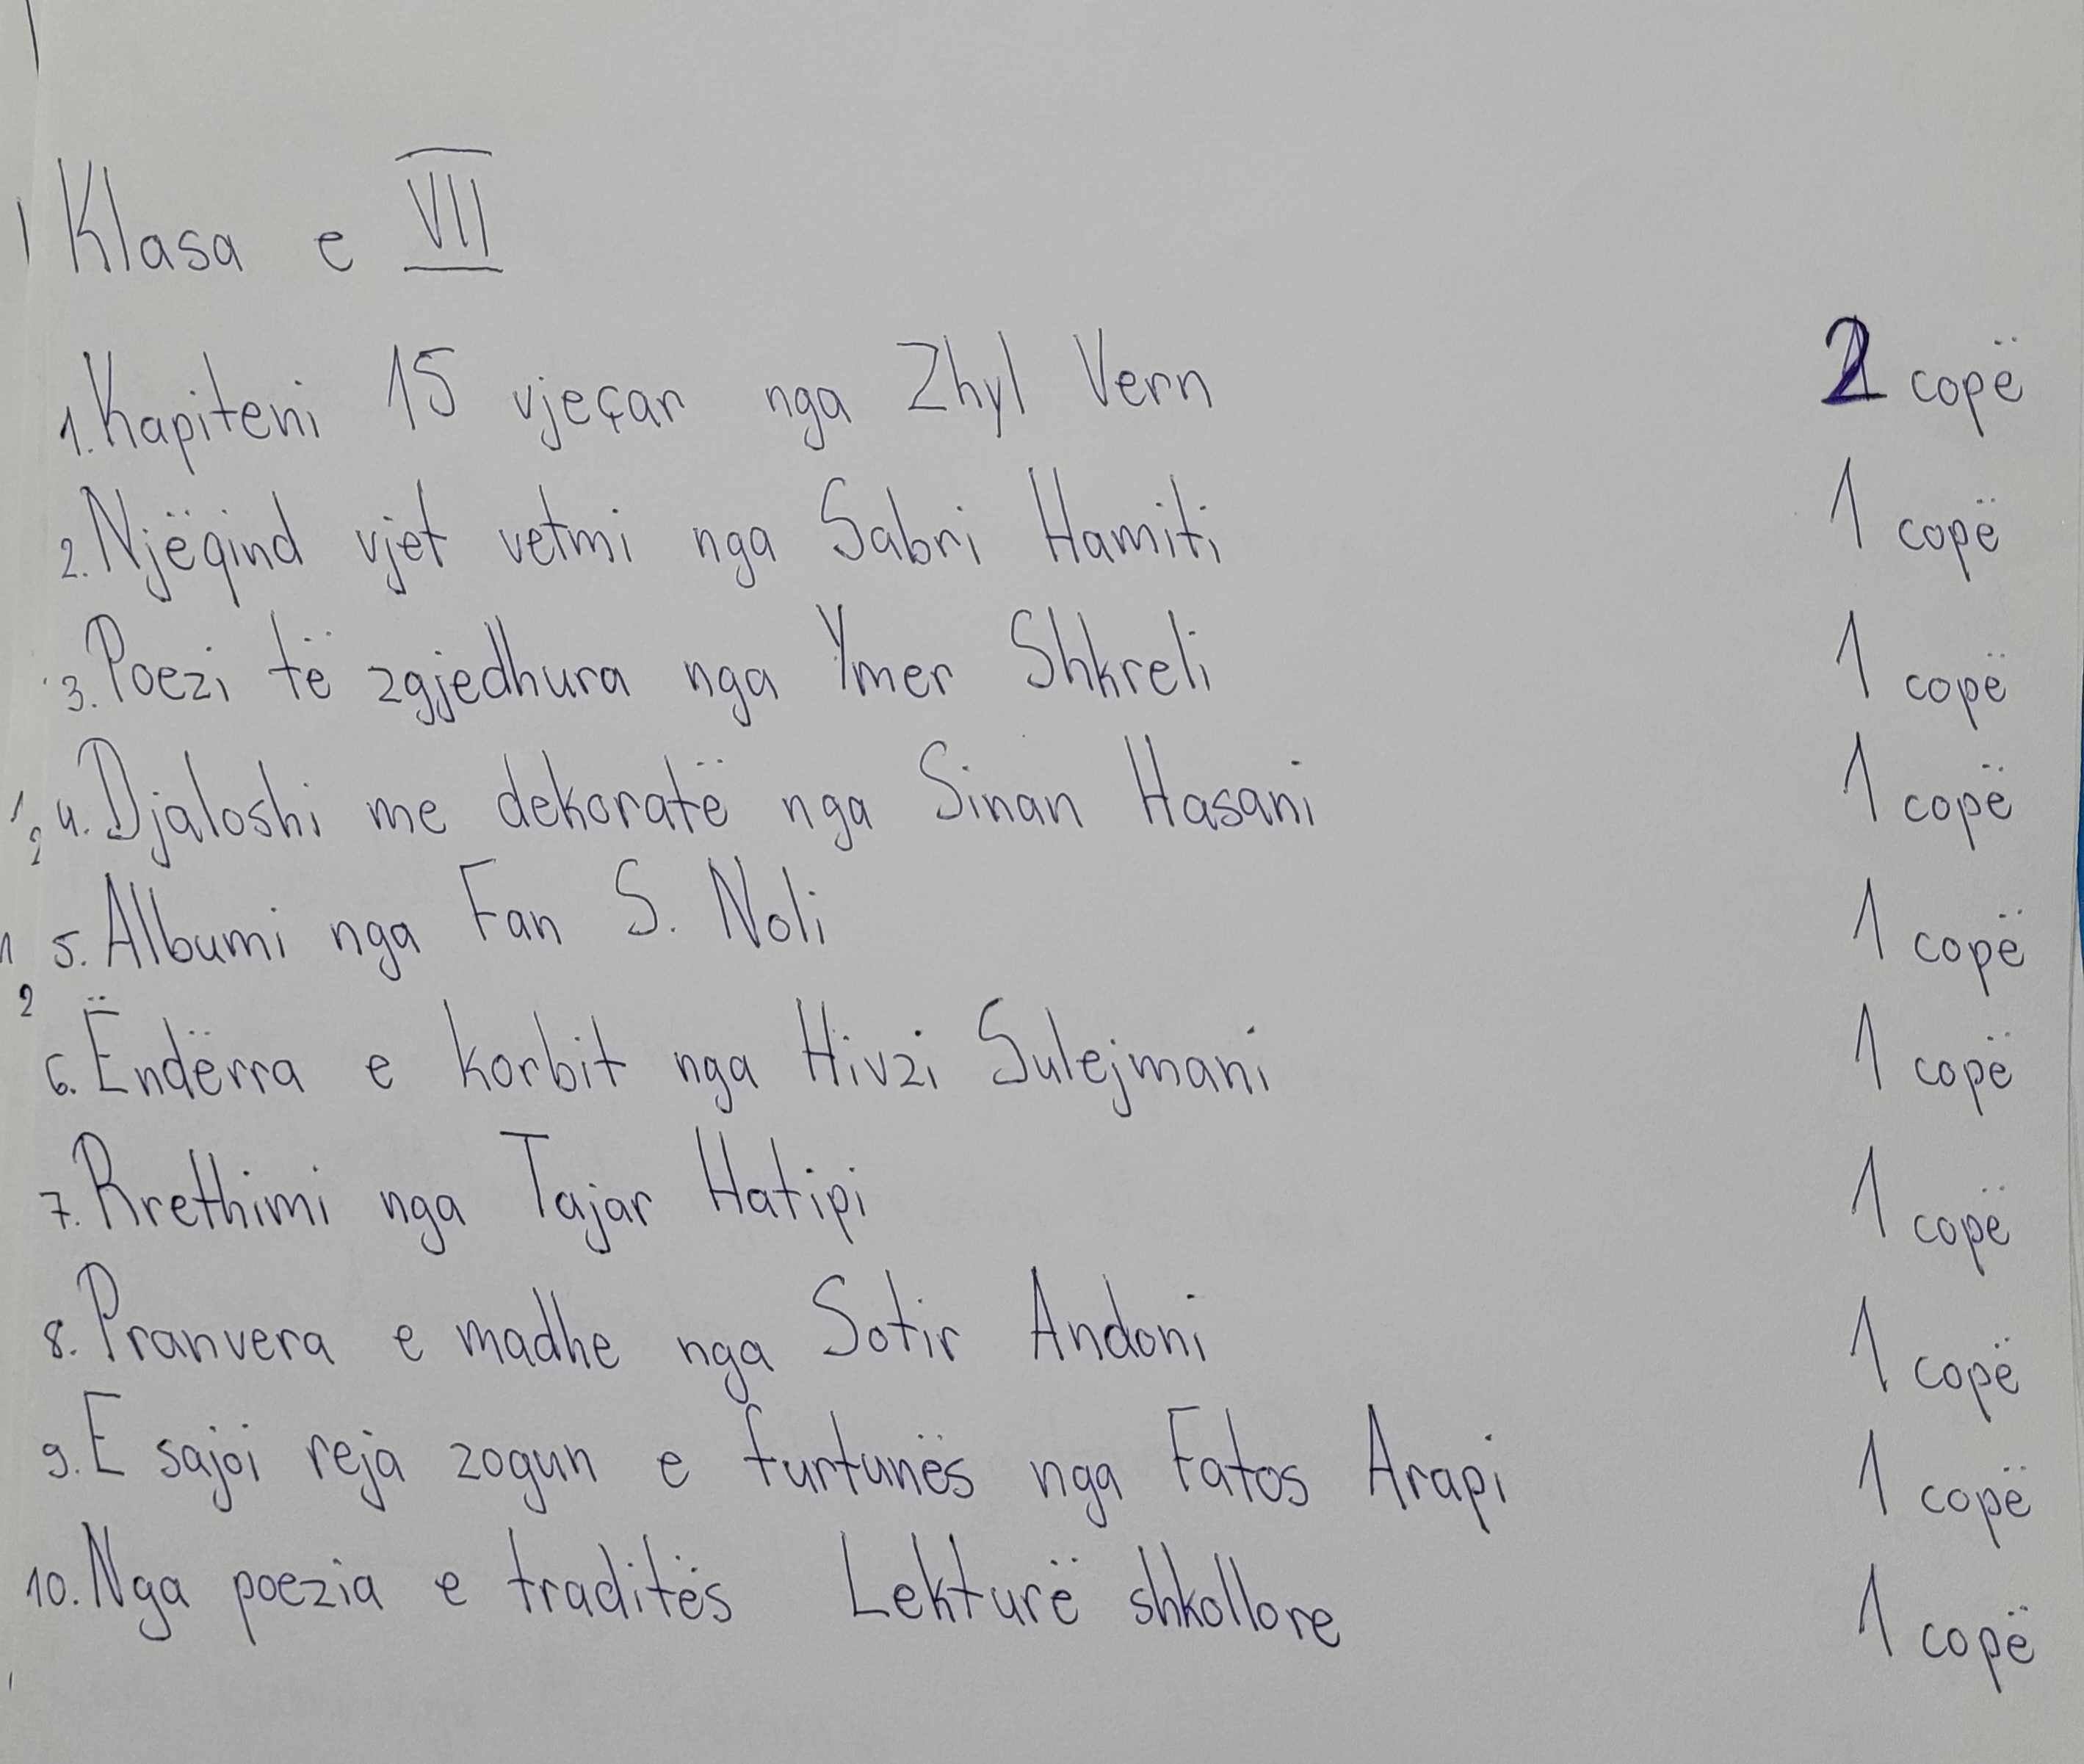 Klasa e VII
1. Kapiteni 15 vjeçar nga Zhyl Vern 2 copë
2. Njëqind vjet vetmi nga Sabri Hamiti 1 copë
3. Poezi të zgjedhura nga Ymer Shkreli 1 copë
4. Djaloshi me dekoratë nga Sinan Hasani 1 copë
5. Albumi nga Fan S. Noli 1 copë
6. Ëndërra e korbit nga Hivzi Sulejmani 1 copë
7. Rrethimi nga Tajar Hatipi 1 copë
8. Pranvera e madhe nga Sotir Andoni 1 copë
9. E sajoi reja zogun e furtunës nga Fatos Arapi 1 copë
10. Nga poezia e traditës Lekturë shkollore 1 copë